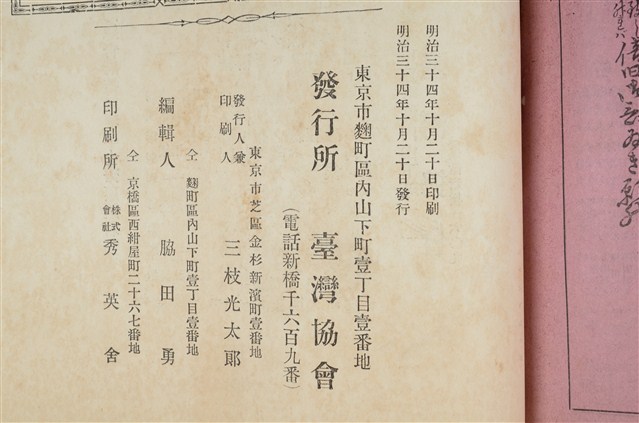 明治三十四年十月二十日印刷
明治三十四年十月二十日發行
東京市麴町區內山下町壹丁目壹番地
發行所 臺灣協會
(電話新橋千六百九番)
東京市芝區金杉新濱町壹番地
發行人兼印刷人 三枝光太郎
仝 麴町區內山下町壹丁目壹番地
編輯人 脇田勇
仝 京橋區西紺屋町二十六七番地
印刷所 株式會社 秀英舍